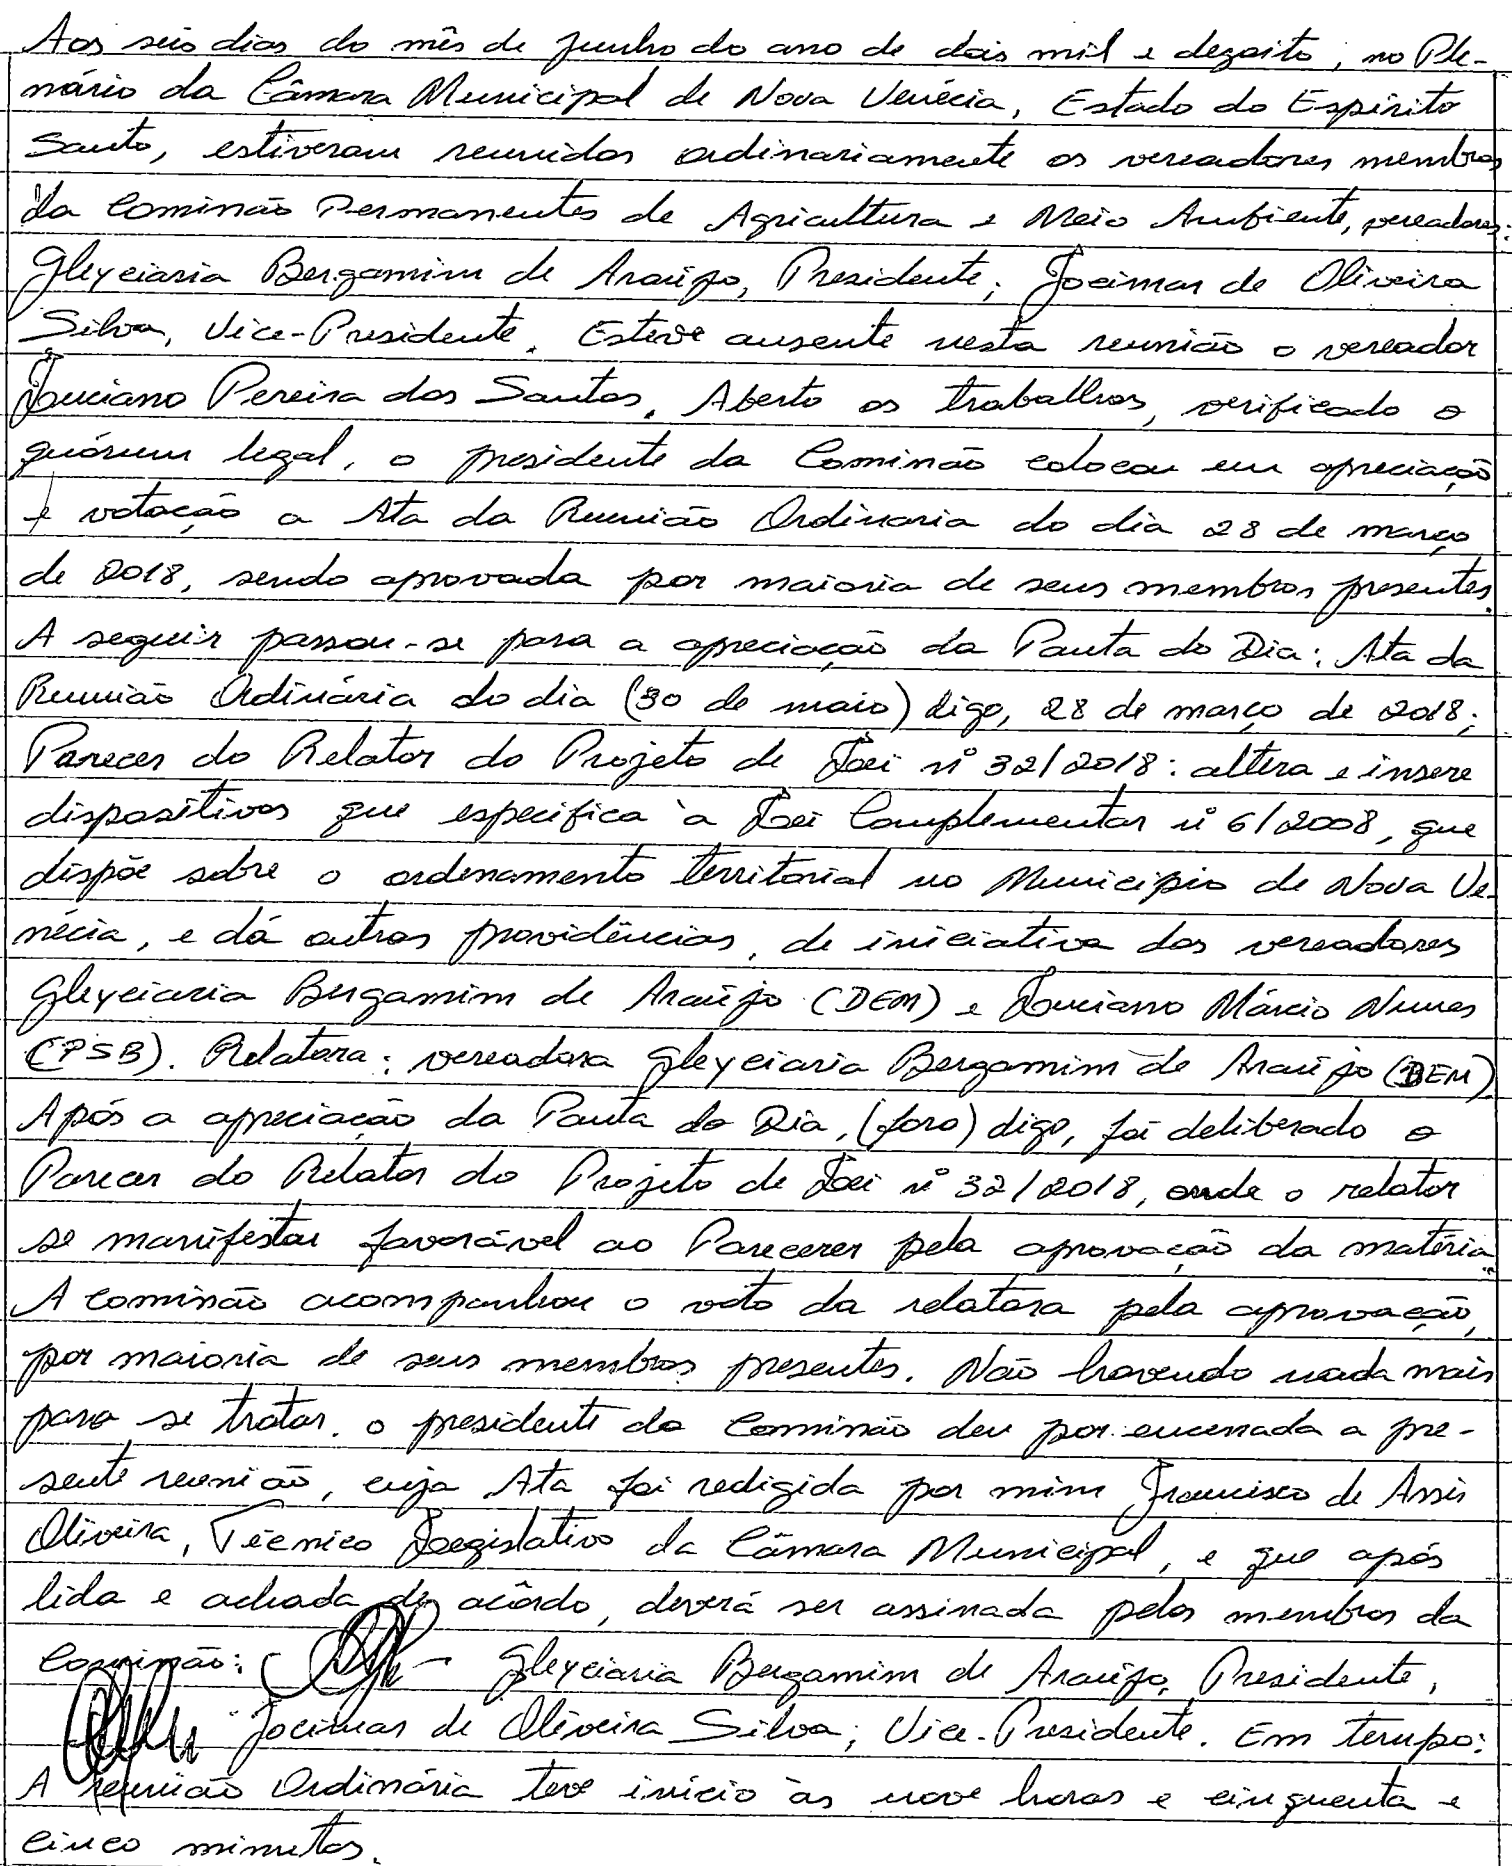 Aos seis dias do mês de junho do ano de dois mil e dezoito, no Ple-
nário da Câmara Municipal de Nova Venécia, Estado do Espírito
Santo, estiveram reunidos ordinariamente os vereadores membros
da Comissão Permanentes de Agricultura e Meio Ambiente, vereadores:
Gleyciaria Bergamim de Araújo, Presidente; Jocimar de Oliveira
Silva, Vice-Presidente. Esteve ausente nesta reunião o vereador
Luciano Pereira dos Santos. Aberto os trabalhos, verificado o
quórum legal, o presidente da Comissão colocou em apreciação
e votação a Ata da Reunião Ordinaria do dia 28 de março
de 2018, sendo aprovada por maioria de seus membros presentes.
A seguir passou-se para a apreciação da Pauta do Dia: Ata da
Reunião Ordinária do dia (30 de maio) digo, 28 de março de 2018;
Parecer do Relator do Projeto de Lei nº 32/2018: altera e insere
dispositivos que especifica à Lei Complementar nº 6/2008, que
dispõe sobre o ordenamento territorial no Município de Nova Ve-
nécia, e dá outras providências, de iniciativa dos vereadores
Gleyciaria Bergamim de Araújo (DEM) e Luciano Márcio Nunes
(PSB). Relatora: vereadora Gleyciaria Bergamim de Araújo (DEM)
Após a apreciação da Pauta do Dia, (foro) digo, foi deliberado o
Parecer do Relator do Projeto de Lei nº 32/2018, onde o relator
se manifestou favorável ao Parecerer pela aprovação da matéria.
A comissão acompanhou o voto da relatora pela aprovação,
por maioria de seus membros presentes. Não havendo nada mais
para se tratar, o presidente da Comissão deu por encerrada a pre-
sente reunião, cuja Ata foi redigida por mim Francisco de Assis
Oliveira, Técnico Legislativo da Câmara Municipal, e que após
lida e achada de acôrdo, deverá ser assinada pelos membros da
Comissão: - Gleyciaria Bergamim de Araújo, Presidente,
Jocimar de Oliveira Silva; Vice-Presidente. Em tempo:
A reunião Ordinária teve início às nove horas e cinquenta e
cinco minutos.